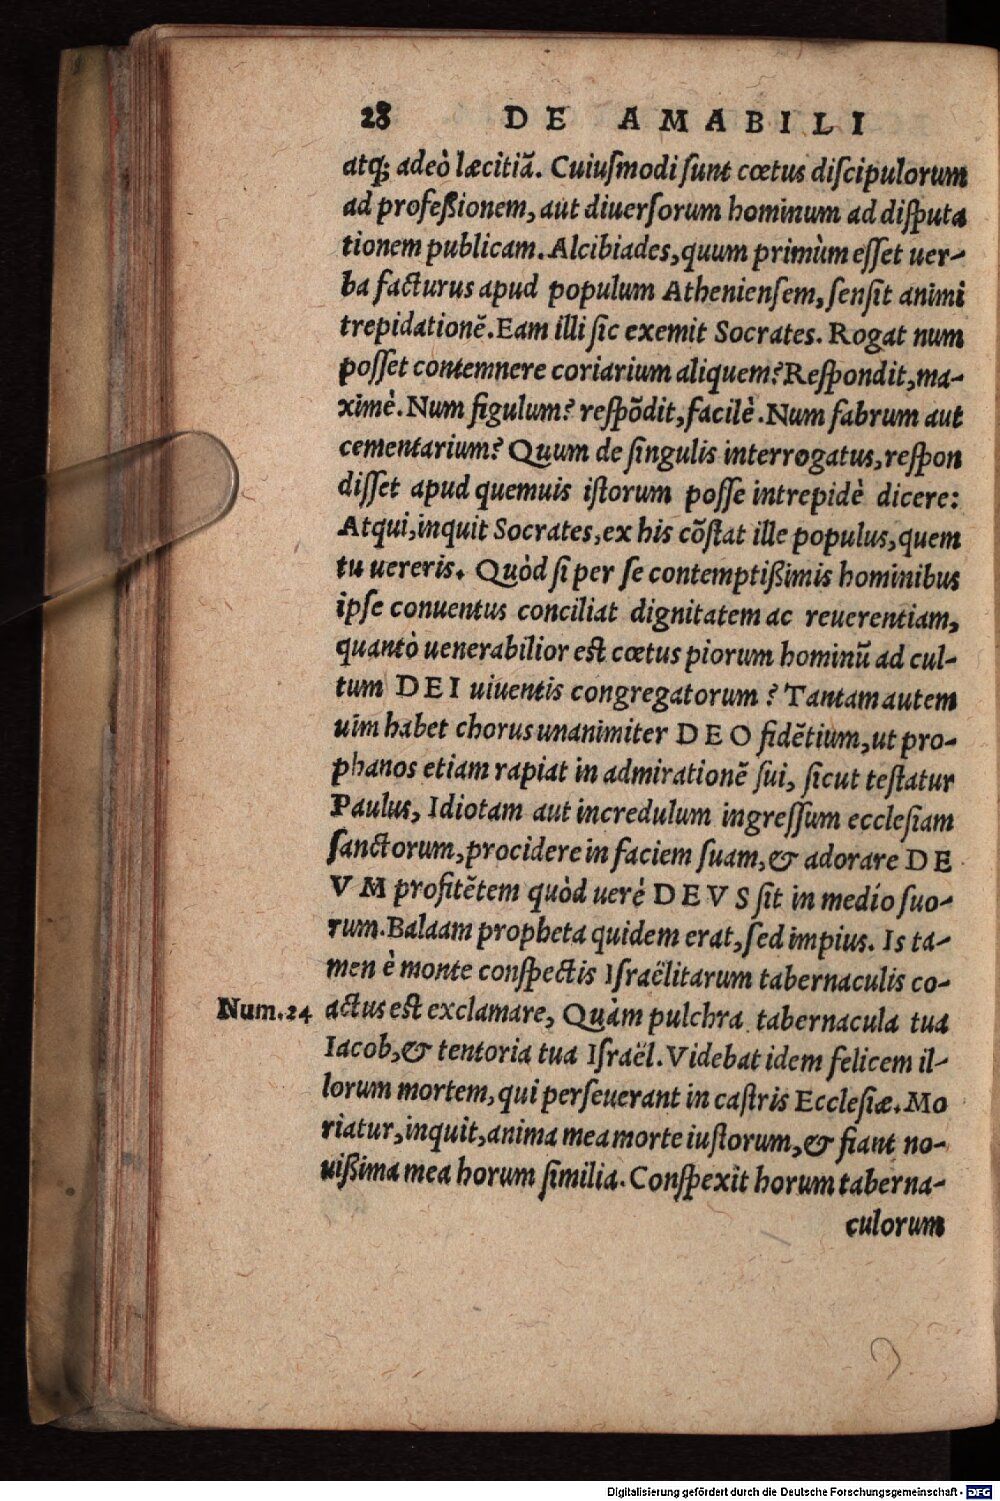 28 DE AMABILI
atq; adeò læcitiã. Cuiuſmodi ſunt cœtus diſcipulorum
ad profeßionem, aut diuerſorum hominum ad diſputa
tionem publicam. Alcibiades, quum primùm eſſet uer-
ba facturus apud populum Athenienſem, ſenſit animi
trepidationẽ. Eam illi ſic exemit Socrates. Rogat num
poſſet contemnere coriarium aliquem? Reſpondit, ma-
ximè. Num figulum? reſpõdit, facilè. Num fabrum aut
cementarium? Quum de ſingulis interrogatus, reſpon
diſſet apud quemuis iſtorum poſſe intrepidè dicere:
Atqui, inquit Socrates, ex his cõſtat ille populus, quem
tu uereris. Quòd ſi per ſe contemptißimis hominibus
ipſe conuentus conciliat dignitatem ac reuerentiam,
quantò uenerabilior eſt cœtus piorum hominũ ad cul-
tum DEI uiuentis congregatorum? Tantam autem
uim habet chorus unanimiter DEO fidẽtium, ut pro-
phanos etiam rapiat in admirationẽ ſui, ſicut teſtatur
Paulus, Idiotam aut incredulum ingreſſum eccleſiam
ſanctorum, procidere in faciem ſuam, & adorare DE
VM profitẽtem quòd uerè DEVS ſit in medio ſuo-
rum. Balaam propheta quidem erat, ſed impius. Is ta-
men è monte conſpectis Iſraëlitarum tabernaculis co-
Num.24 actus eſt exclamare, Quàm pulchra tabernacula tua
Iacob, & tentoria tua Iſraël. Videbat idem felicem il-
lorum mortem, qui perſeuerant in caſtris Eccleſiæ. Mo
riatur, inquit, anima mea morte iuſtorum, & fiant no-
uißima mea horum ſimilia. Conſpexit horum taberna-
culorum
Digitalisierung gefördert durch die Deutsche Forschungsgemeinschaft - DFG